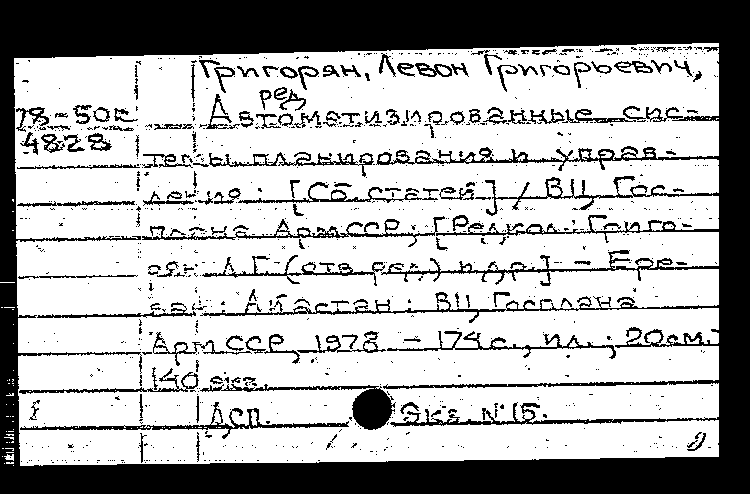 Григорян, Левон Григорьевич,
ред.
78-50к Автоматизированные сис-
4828 темы планирования и управ-
ления: [Сб. статей] / ВЦ Гос-
плана АрмССР; [Редкол.: Григо-
рян Л.Г. (отв. ред.) и др.] - Ере-
ван: Айастан: ВЦ Госплана
АрмССР, 1978 - 174с., ил.; 20см.-
140 экз.
Дсп. Экз. № 15.